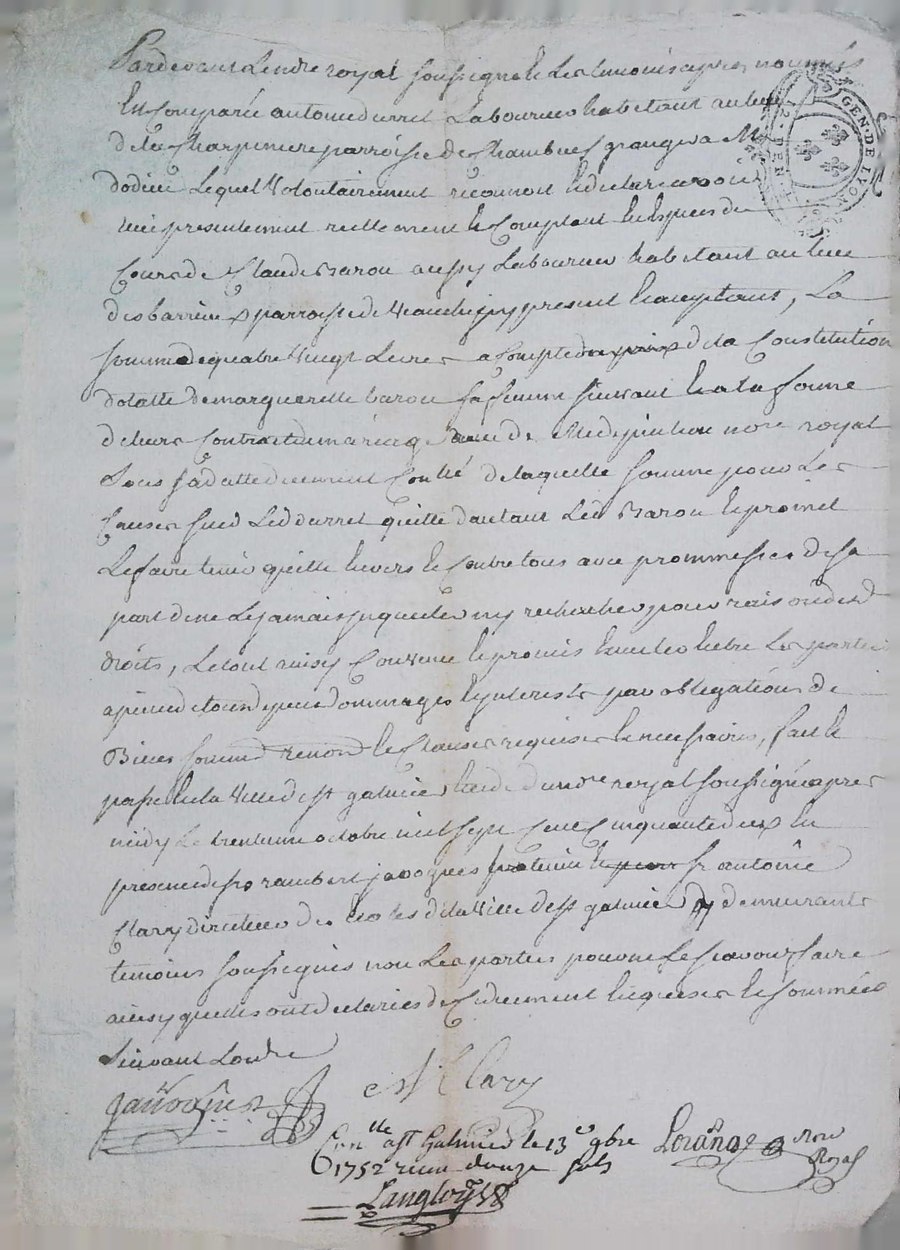 Pardevant le nore royal soussigné et les temoins apres nommés
est comparu antoine durret Laboureur habitant au lieu
de la Charpiniere parroisse de Chambeuf granger a Mr
dodieu Lequel Volontairement reconnoit et declare avoir
receu presentement reellement et Comptant en Especes de
Cours de Claude Barou aussy Laboureur habitant au lieu
des barrieres parroisse de Veauche icy present et acceptant, La
somme de quatre Vingt Livres a Compte de la Constitution
dotalle de marguerite barou sa femme suivant et a la forme
de leur Contract de mariage receu de Me nore royal
sous sa datte duement Conllé de laquelle somme pour Les
Causes sued Led durret quitte d'autant Led Barou et promet
Le faire tenir quitte Envers et Contre tous avec prommesses de sa
part de ne Le jamais inquieter ny rechercher pour raison desd
droits, Le tout ainsy Convenu et promis Executer Entre Les parties
a peine de tous depens dommages et interests par obligations de
Biens soumis renon et Clauses requises et necessaires, fait et
passé En la Ville de st galmier Etude du nore royal soussigné apres
midy Le trente un octobre mil sept Cent Cinquante deux En
presence de sr rambert javogues sr antoine
Clary directeur des Ecoles de la Ville de st galmier y demeurants
temoins soussignés non Les parties pour ne Le sçavoir faire
ainsy quelles ont declaré de Ce duement Enquises et sommées
suivant Lordre
Javogues
Clary
Conlle a st Galmier le 13e 9bre
1752 receu douze sols
Langlois
nore
Royal
GEN. DE LYON
12. DEN.